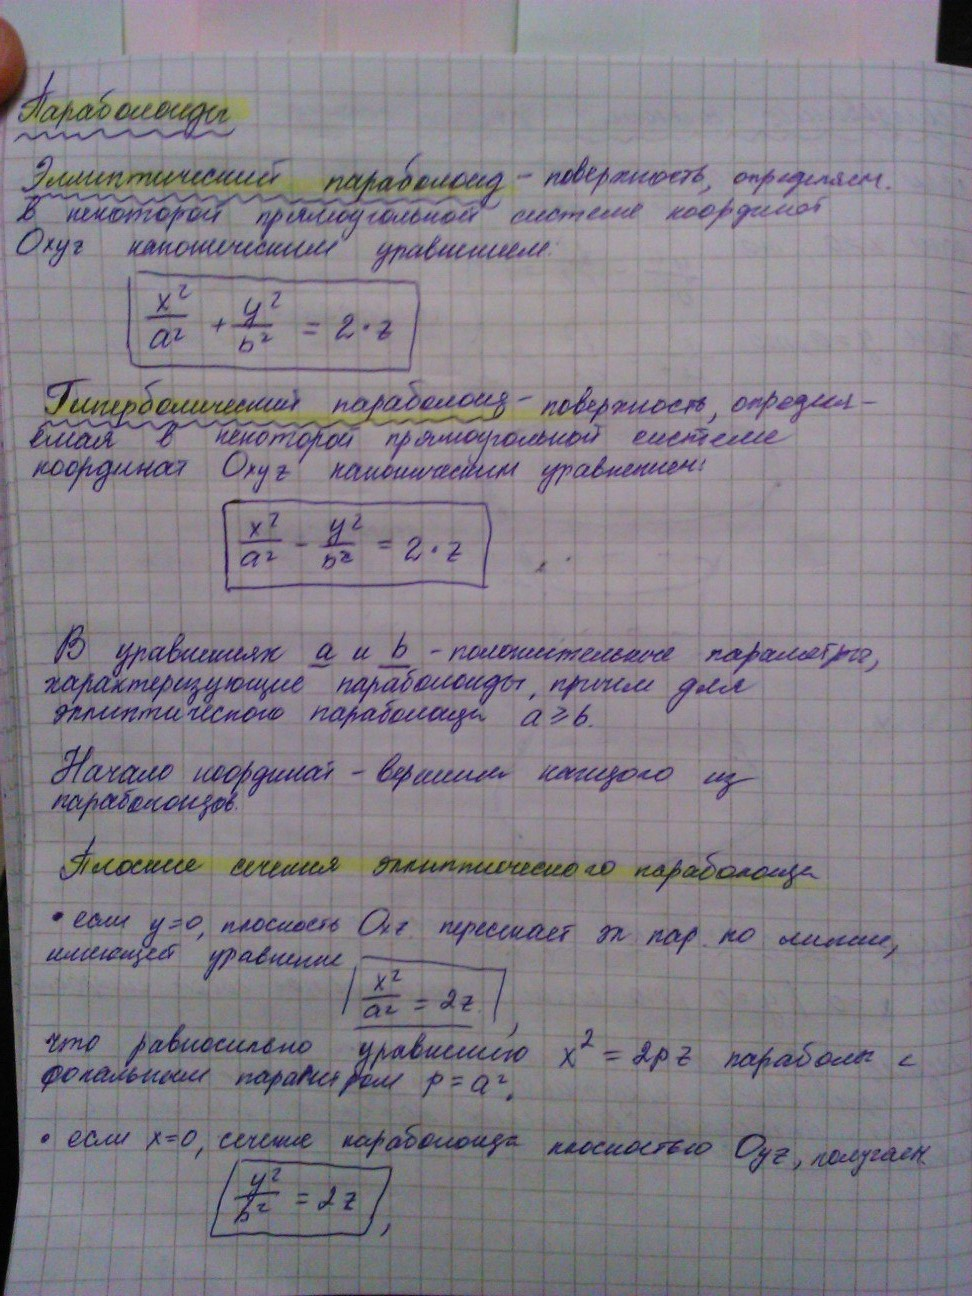 Параболоиды
Эллиптический параболоид - поверхность, определяем.
в некоторой прямоугольной системе координат
Oxyz каноническим уравнением:
x²/a² + y²/b² = 2·z
Гиперболический параболоид - поверхность, определя-
емая в некоторой прямоугольной системе
координат Oxyz каноническим уравнением:
x²/a² - y²/b² = 2·z
В уравнениях a и b - положительные параметры,
характеризующие параболоиды, причем для
эллиптического параболоида a ≥ b.
Начало координат - вершина каждого из
параболоидов.
Плоские сечения эллиптического параболоида
• если y=0, плоскость Oxz пересекает эл. пар. по линии,
имеющей уравнение
x²/a² = 2z,
что равносильно уравнению x² = 2pz параболы с
фокальным параметром p = a².
• если x=0, сечение параболоида плоскостью Oyz, получаем
y²/b² = 2z,